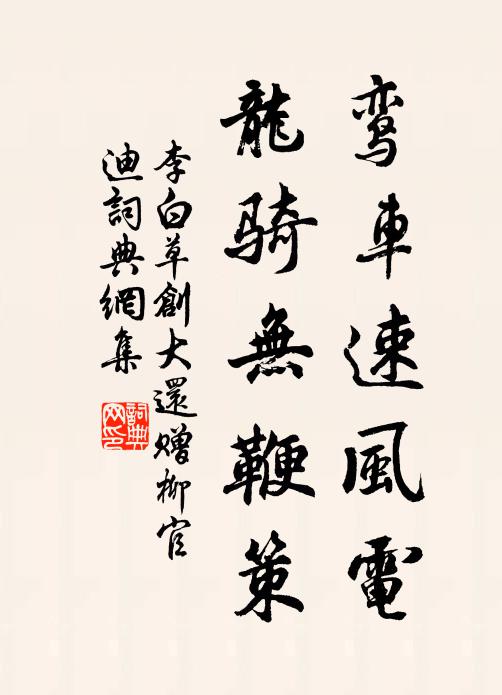 鸾車速風電
龍騎無鞭策
李白草創大還贈柳官
迪詞典網集
詞典
网印